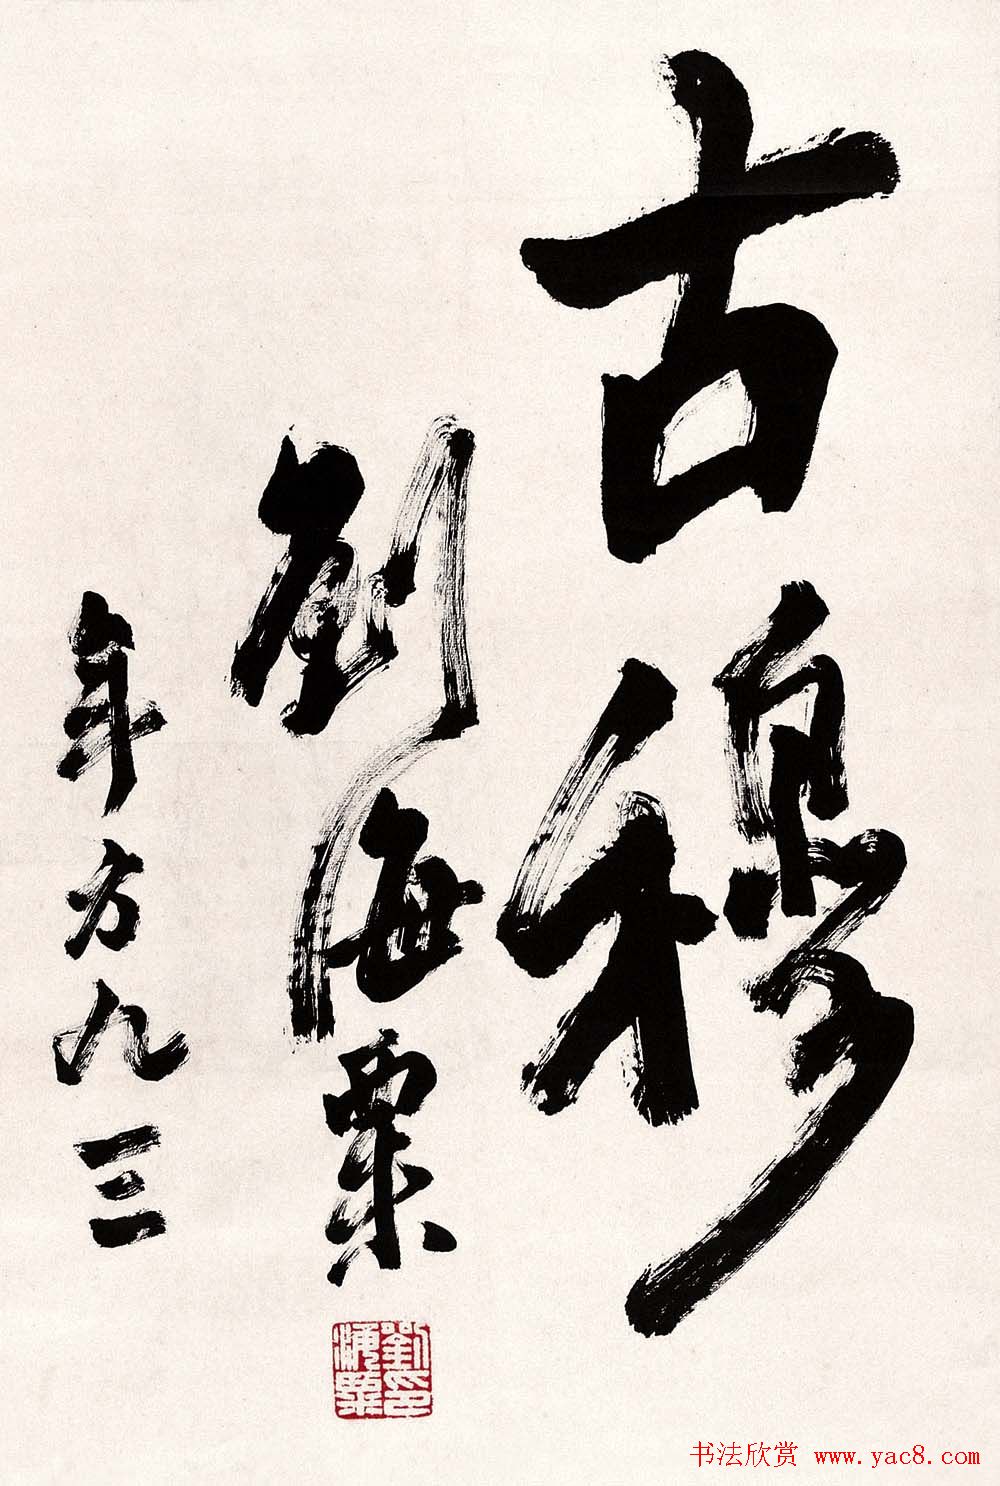 古穆
劉海粟
年方九三
劉海粟印
书法欣赏 www.yac8.com